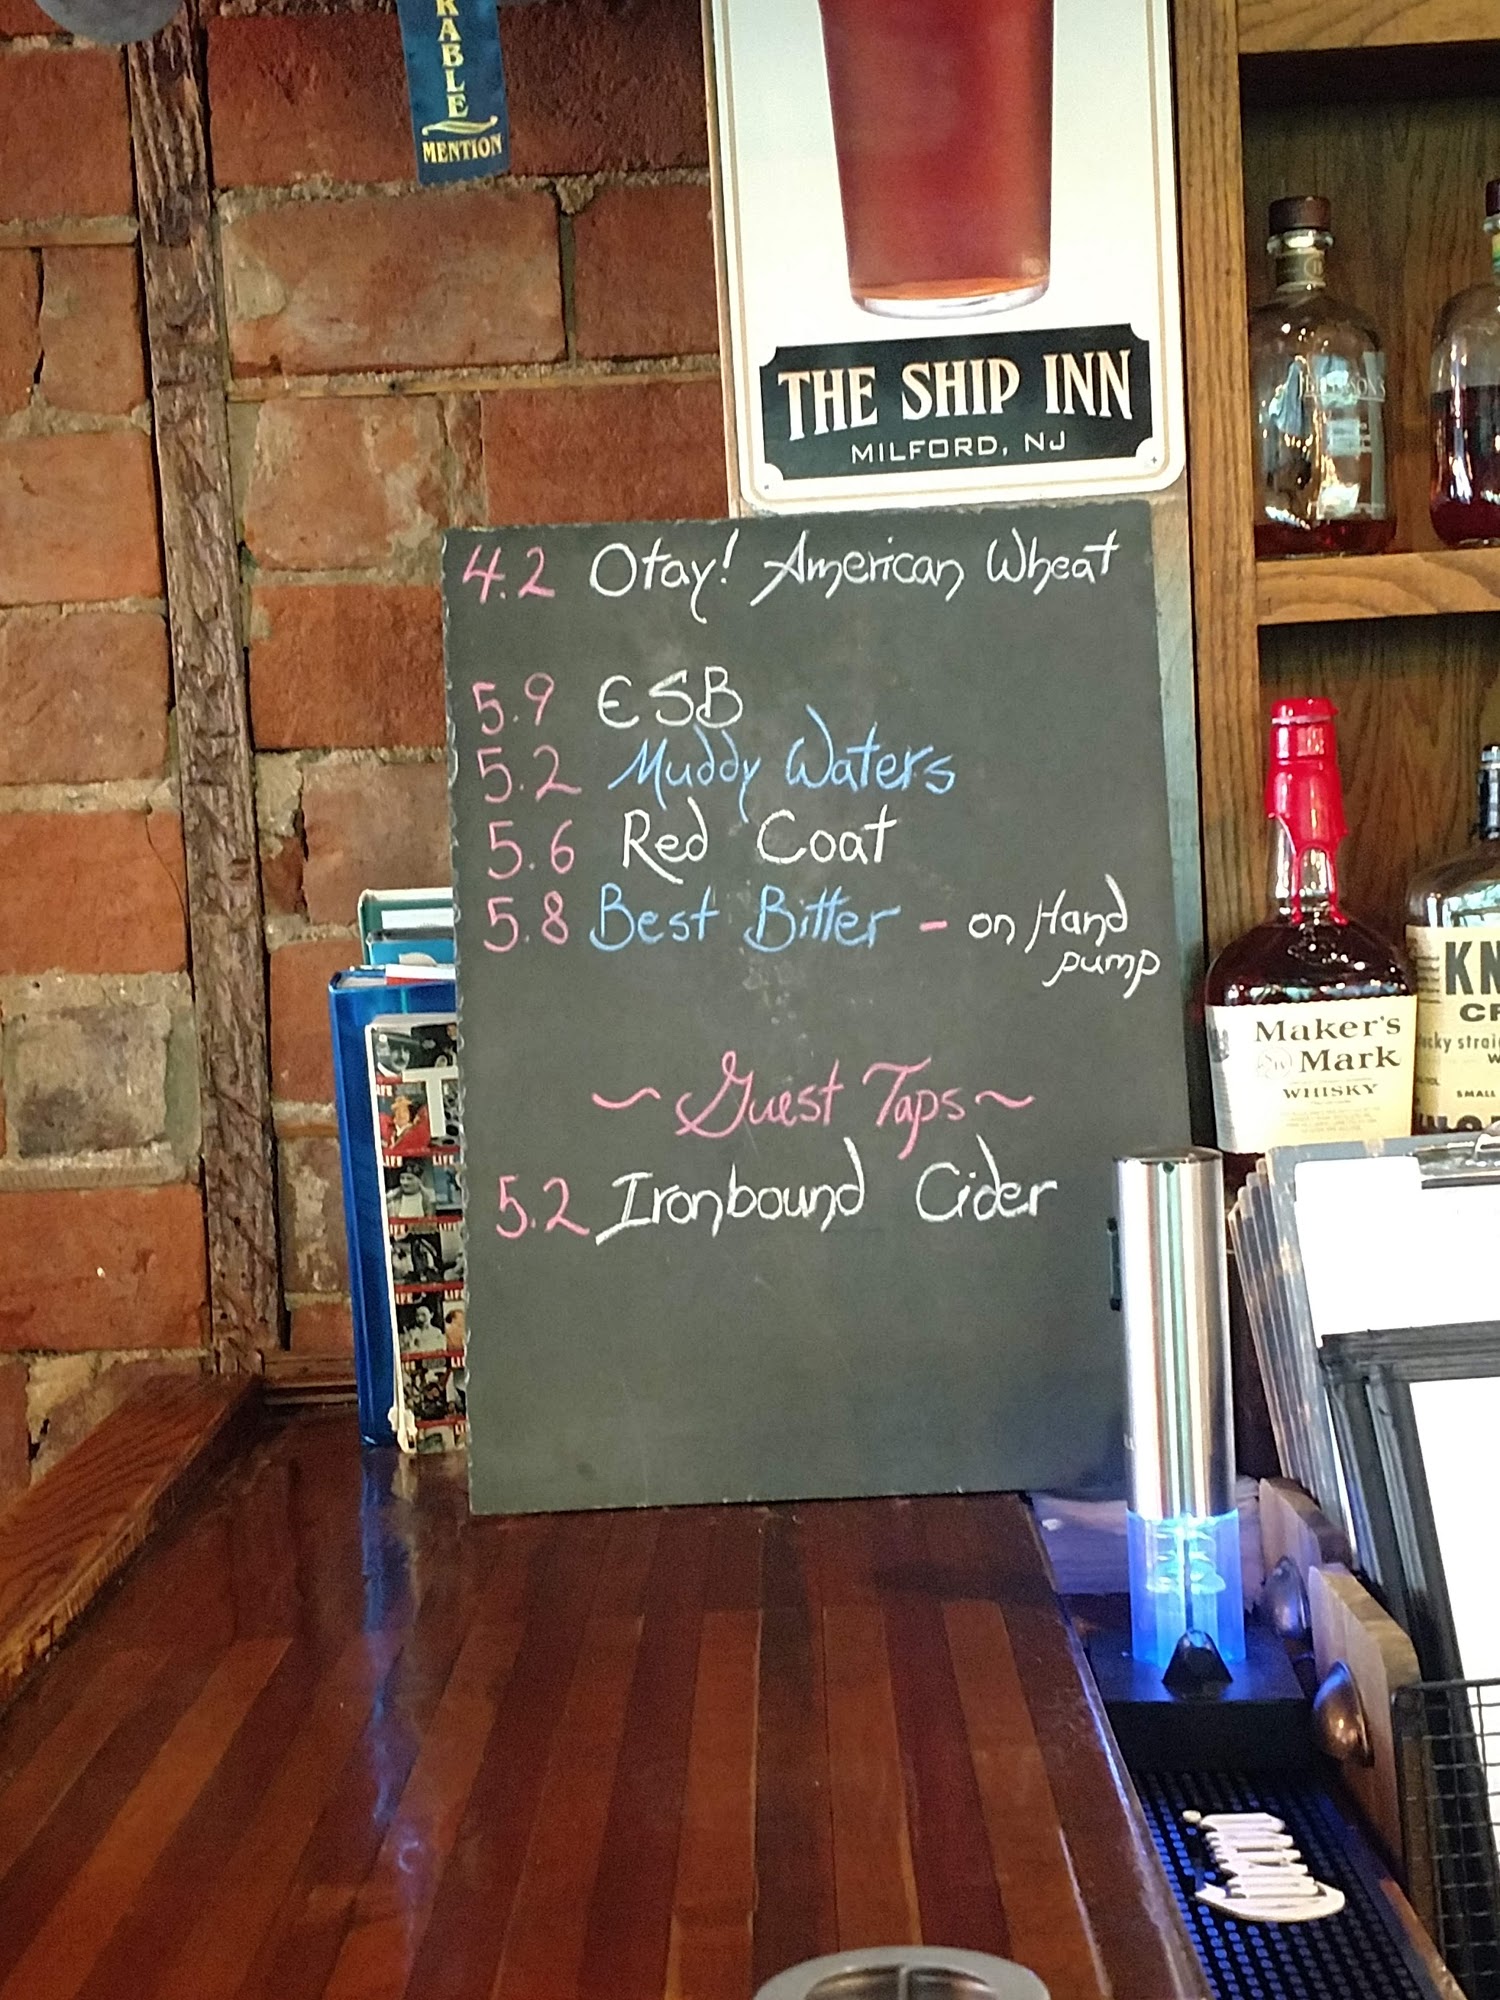 RABLE
MENTION
THE SHIP INN
MILFORD, NJ
4.2 Otay! American Wheat
5.9 ESB
5.2 Muddy Waters
5.6 Red Coat
5.8 Best Bitter - on Hand
pump
~ Guest Taps ~
5.2 Ironbound Cider
Maker's
Mark
WHISKY
KN
CR
SMALL
LIFE
LIFE
LIFE
LIFE